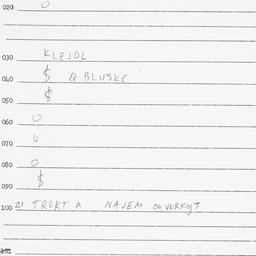 020 0
030 KLEJDL
040 $ Q BLUSKE
050 $
060 0
070 0
080 0
090 $
100 21 TROKT A NAJEM
101